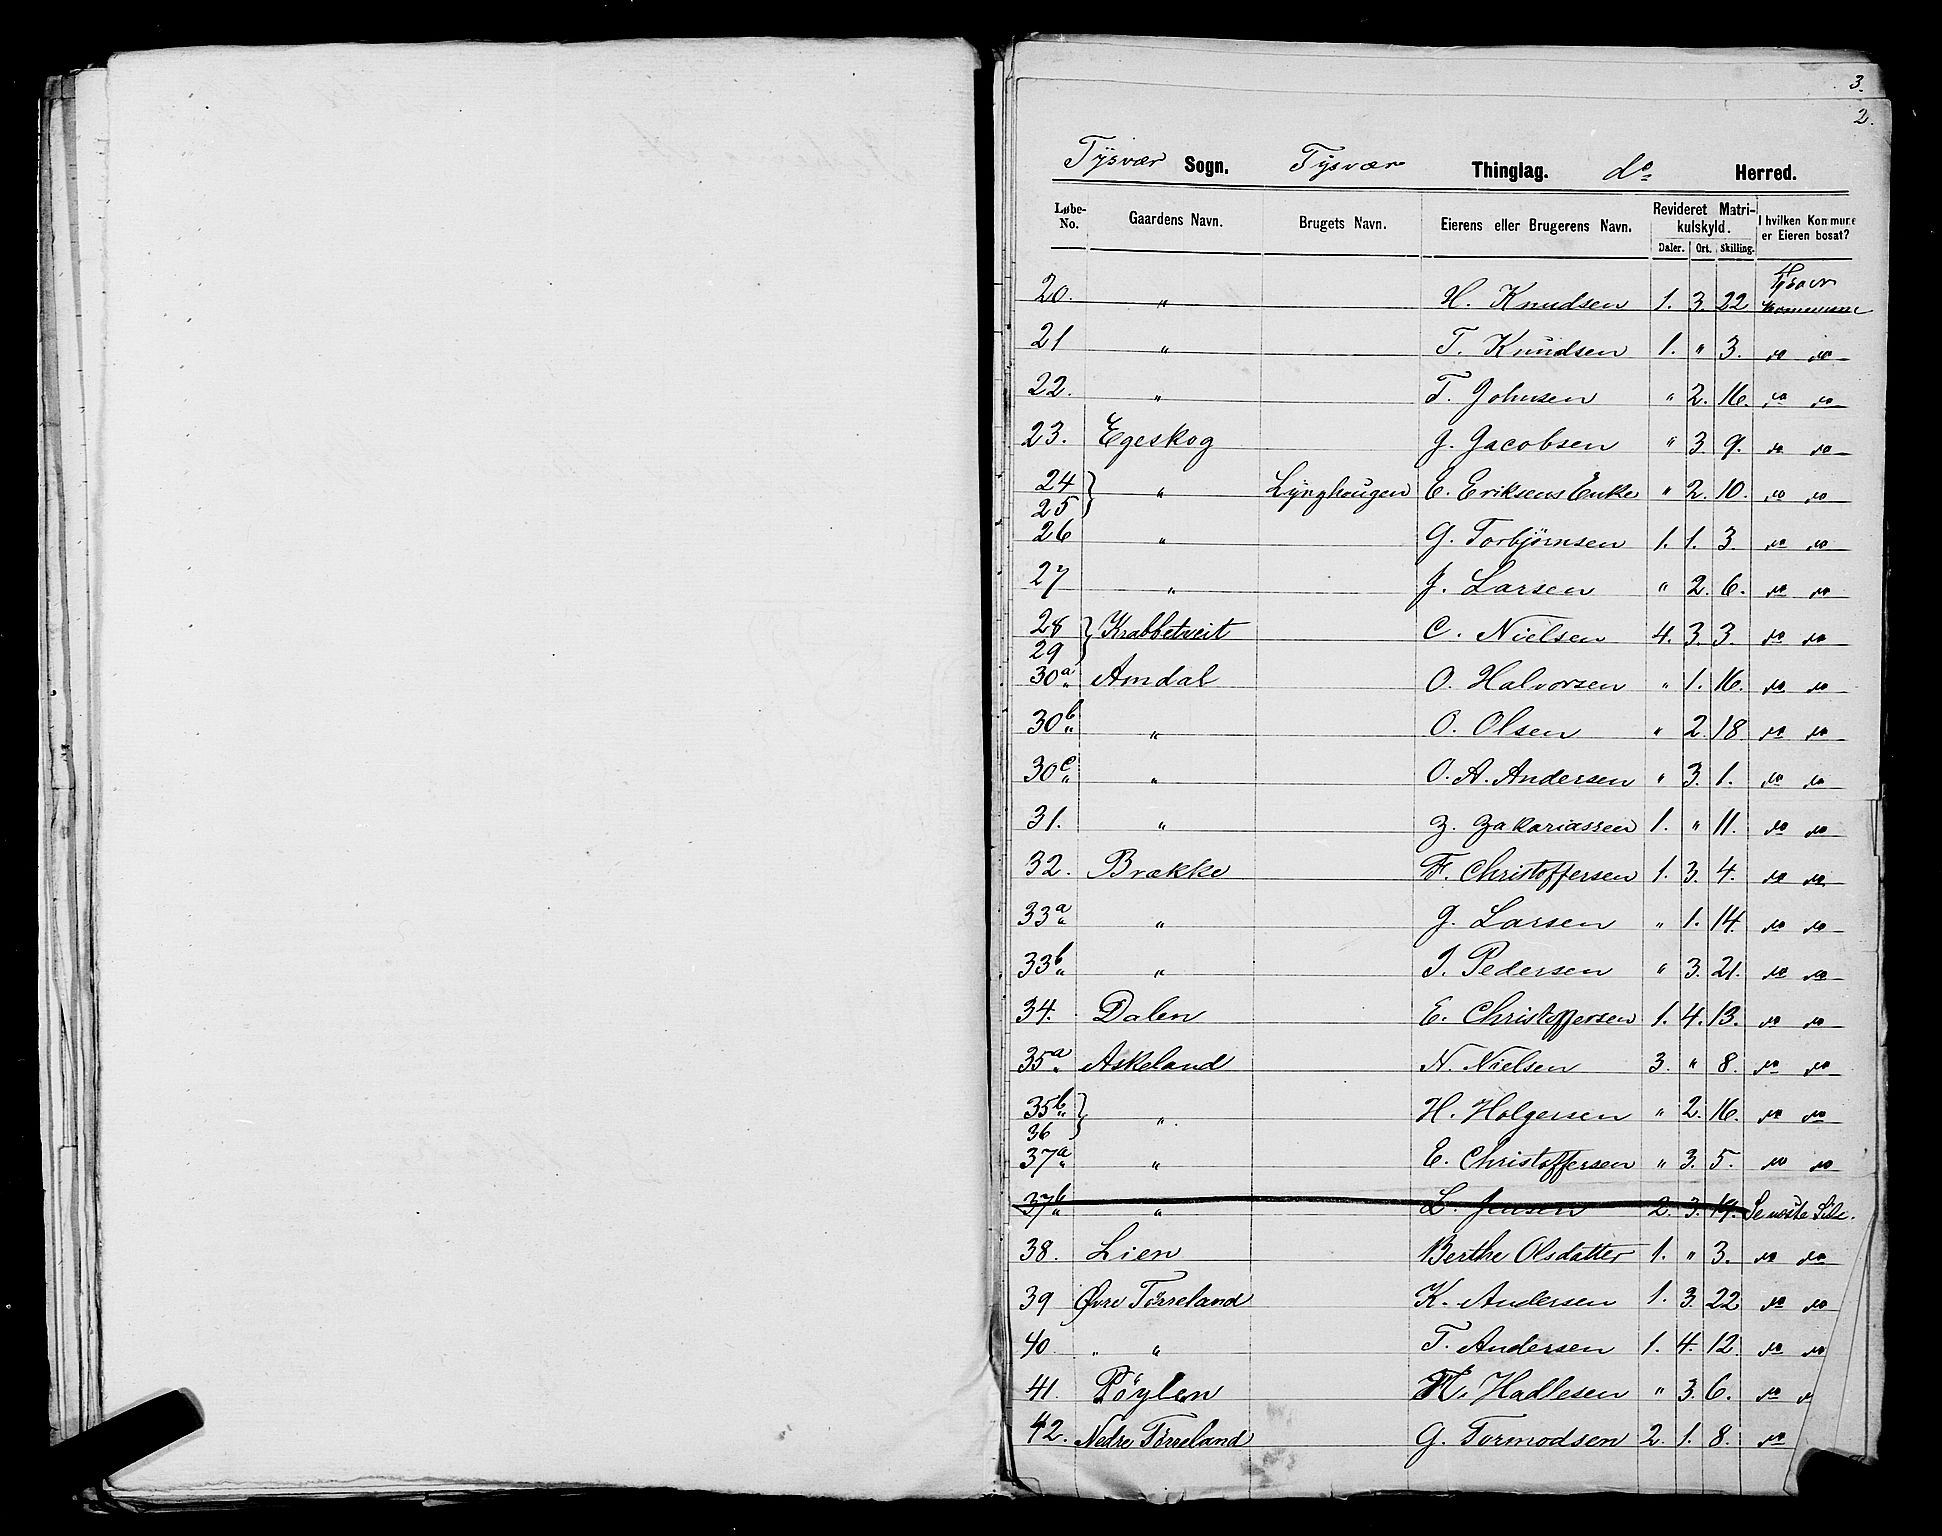 3.
2.
Tysvær Sogn. Tysvær Thinglag. do Herred.
Løbe-No. Gaardens Navn. Brugets Navn. Eierens eller Brugerens Navn. Revideret Matrikulskyld. Daler. Ort. Skilling. I hvilken Kommune er Eieren bosat?
20. " H. Knudsen 1. 3. 22 Tysvær Kommune
21 " T. Knudsen 1. " 3. do do
22. " T. Johnsen " 2. 16. do do
23. Egeskog G. Jacobsen " 3 9. do do
24 25 } " Lynghougen E. Eriksens Enke " 2. 10. do do
26 " G. Torbjørnsen 1. 1. 3. do do
27 " J. Larsen " 2. 6. do do
28 29 } Krabbetveit C. Nielsen 4. 3. 3. do do
30a Amdal O. Halvorsen " 1. 16. do do
30b " O. Olsen " 2 18 do do
30c " O. A. Andersen " 3. 1. do do
31. " Z. Zakariassen 1. " 11. do do
32. Brække F. Christoffersen 1. 3. 4. do do
33a " G. Larsen " 1. 14. do do
33b " J. Pedersen " 3. 21. do do
34. Dalen E. Christoffersen 1. 4. 13. do do
35a Askeland N. Nielsen 3. " 8. do do
35b 36 } " H. Holgersen " 2. 16. do do
37a " E. Christoffersen " 3. 5. do do
37b " L. Jensen 2. 3. 19. Se næste Side.
38. Lien Berthe Olsdatter 1. " 3. do do
39 Øvre Tørreland K. Andersen 1. 3. 22 do do
40 " " T. Andersen 1. 4. 12. do do
41. Pøylen Hadlesen " 3. 6. do
42. Nedre Tørreland G. Tormodsen 2. 1. 8. do